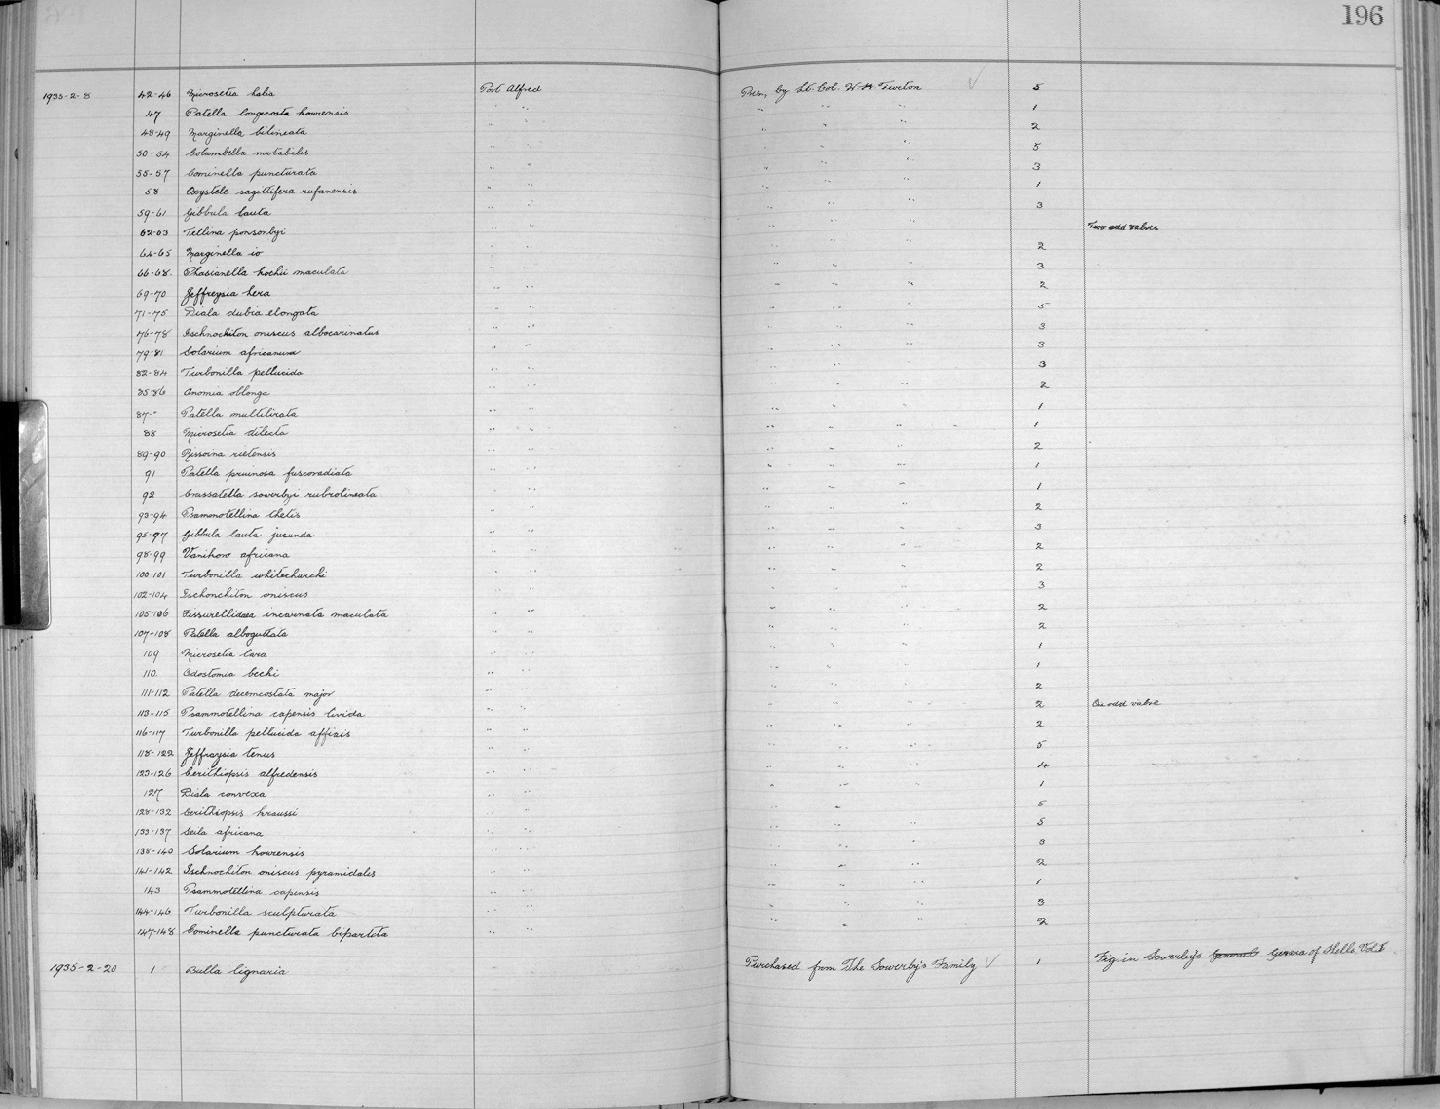 196
1935-2-8 42-46 Microsetia halia Port Alfred Pres, by Lt. Col. W H Turton ✓ 5
47 Patella longicosta kowiensis " " " " " 1
48-49 Marginella bilineata " " " " " 2
50-54 Columbella notabilis " " " " " 5
55-57 Cominella puncturata " " " " " 3
58 Oxystele sagittifera rufanensis " " " " " 1
59-61 Gibbula lauta " " " " " 3
62-63 Tellina ponsonbyi " " " " " Two odd valves
64-65 Marginella io " " " " " 2
66-68 Phasianella kochii maculata " " " " " 3
69-70 Jeffreysia hera " " " " " 2
71-75 Diala dubia elongata " " " " " 5
76-78 Ischnochiton oniscus albocarinatus " " " " " 3
79-81 Solarium africanum " " " " " 3
82-84 Turbonilla pellucida " " " " " 3
85-86 Anomia oblonga " " " " " 2
87 Patella multilirata " " " " " 1
88 Microsetia dilecta " " " " " 1
89-90 Rissoina rietensis " " " " " 2
91 Patella pruinosa fuscoradiata " " " " " 1
92 Crassatella sowerbyi rubrolineata " " " " " 1
93-94 Psammotellina thetis " " " " " 2
95-97 Gibbula lauta jucunda " " " " " 3
98-99 Vanikoro africana " " " " " 2
100-101 Turbonilla whitechurchi " " " " " 2
102-104 Ischonchiton oniscus " " " " " 3
105-106 Fissurellidaea incarnata maculata " " " " " 2
107-108 Patella alboguttata " " " " " 2
109 Microsetia cara " " " " " 1
110 Odostomia bechi " " " " " 1
111-112 Patella decemcostata major " " " " " 2
113-115 Psammotellina capensis livida " " " " " 2 One odd valve
116-117 Turbonilla pellucida affinis " " " " " 2
118-122 Jeffraysia tenus " " " " " 5
123-126 Cerithiopsis alfredensis " " " " " 4
127 Diala convexa " " " " " 1
128-132 Cerithiopsis kraussi " " " " " 5
133-137 Seila africana " " " " " 5
138-140 Solarium kowiensis " " " " " 3
141-142 Ischnochiton oniscus pyramidalis " " " " " 2
143 Psammotellina capensis " " " " " 1
144-146 Turbonilla sculpturata " " " " " 3
147-148 Cominella puncturata bipartita " " " " " 2
1935-2-20 1 Bulla lignaria Purchased from The Sowerby's Family ✓ 1 Fig in Sowerby's Genera of Shells Vol I